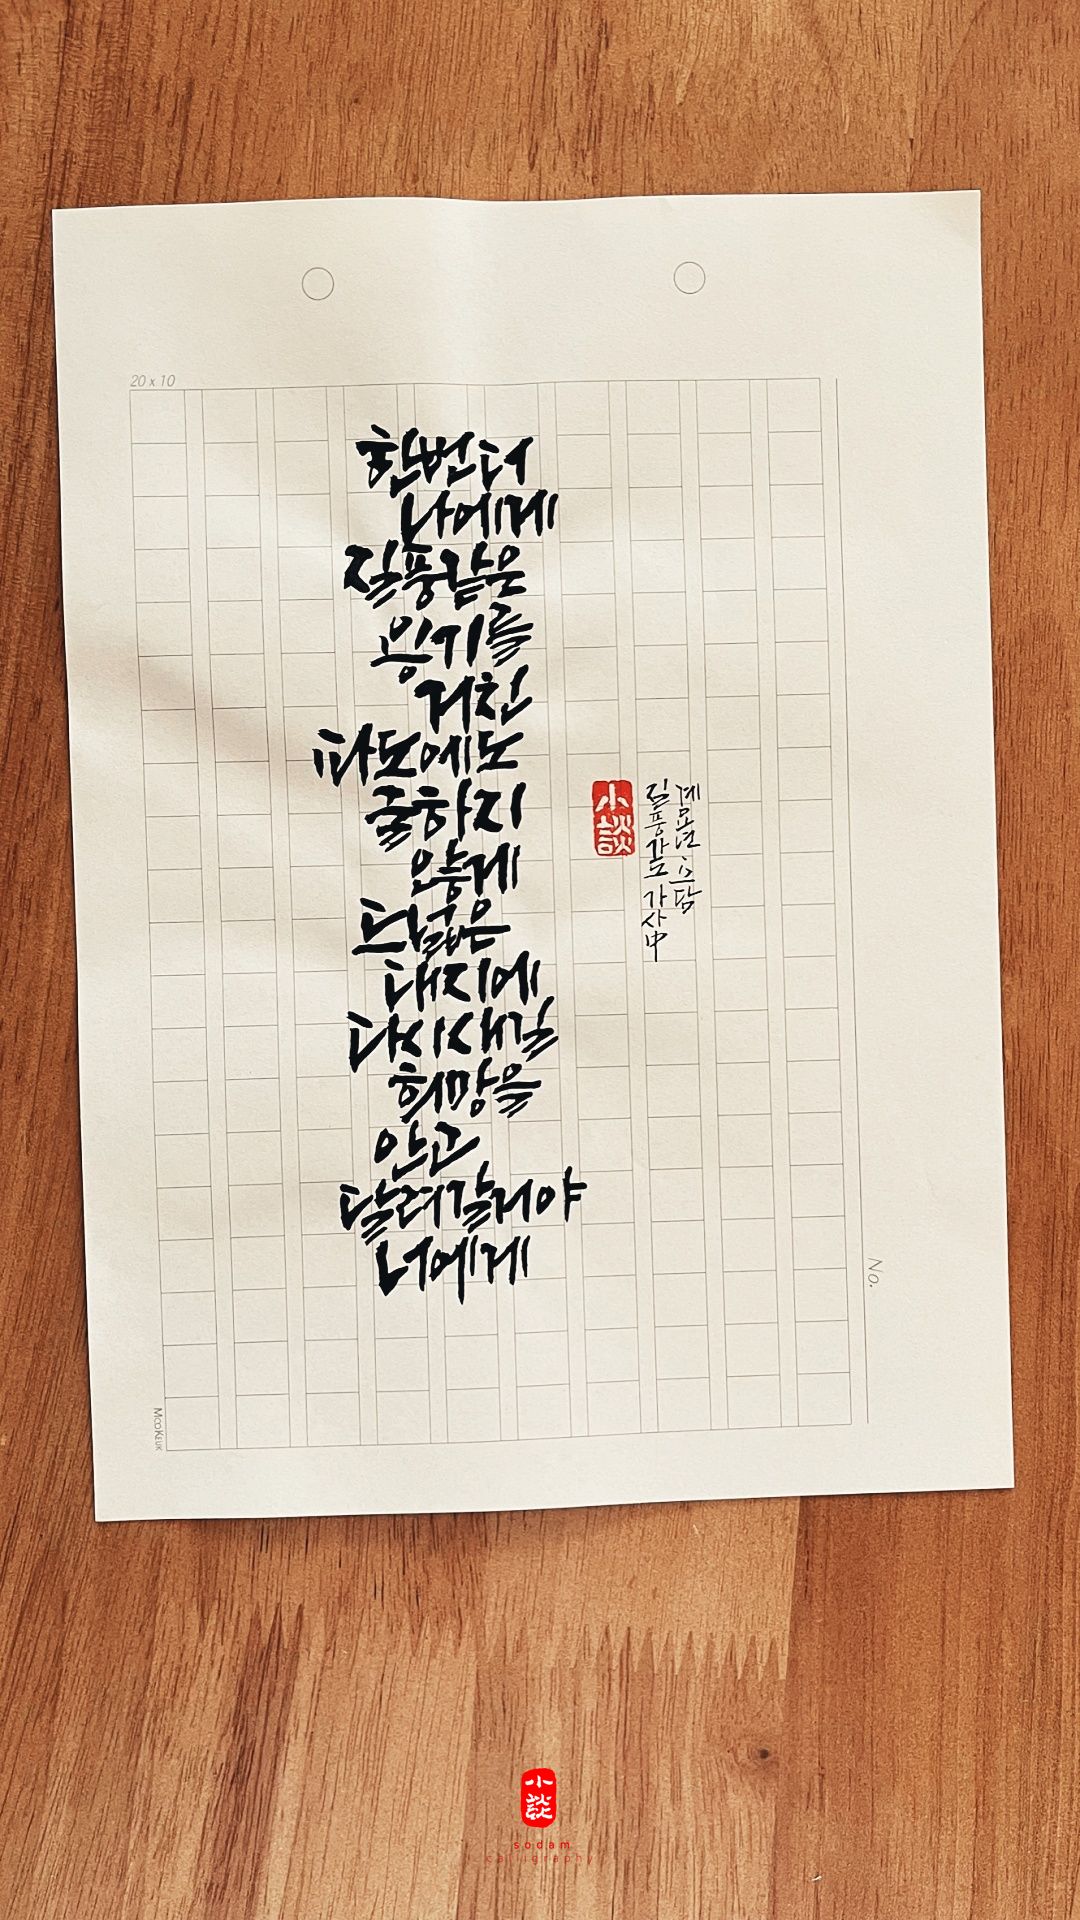 20 x 10
한번 더
나에게
질풍같은
용기를
거친
파도에도
굴하지
않게
드넓은
대지에
다시 새길
희망을
안고
달려갈거야
너에게
계묘년 소담
질풍가도 가사 中
小談
No.
MooKeuk
小談
sodam
calligraphy